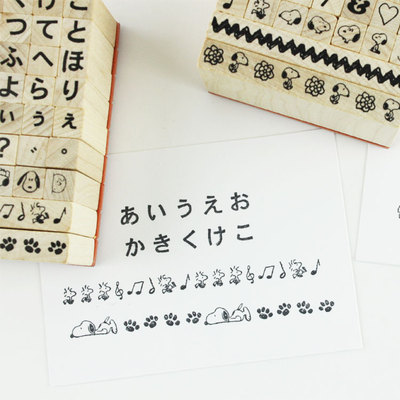 こくつ
とてふよい?
ほへらう
りえ
&
あいうえお
かきくけこ